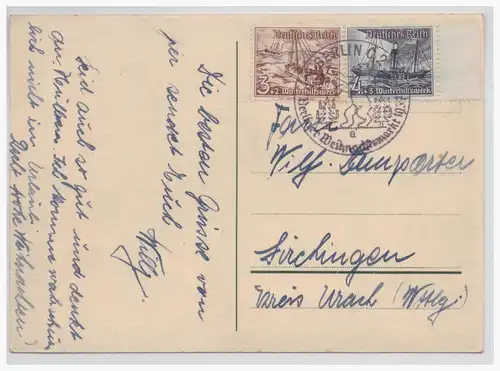 Deutsches Reich
3+2 Winterhilfswerk
Deutsches Reich
4+3 Winterhilfswerk
BERLIN C 2
a
Berliner Weihnachtsmarkt
Die besten Grüsse von
per sendet Euch
Willy.
Seid auch so gut und denkt
an
Ich komme
nicht im Urlaub
frohe Weihnachten
Familie
Wilh.
Sirchingen
Kreis Urach (Wttbg.)